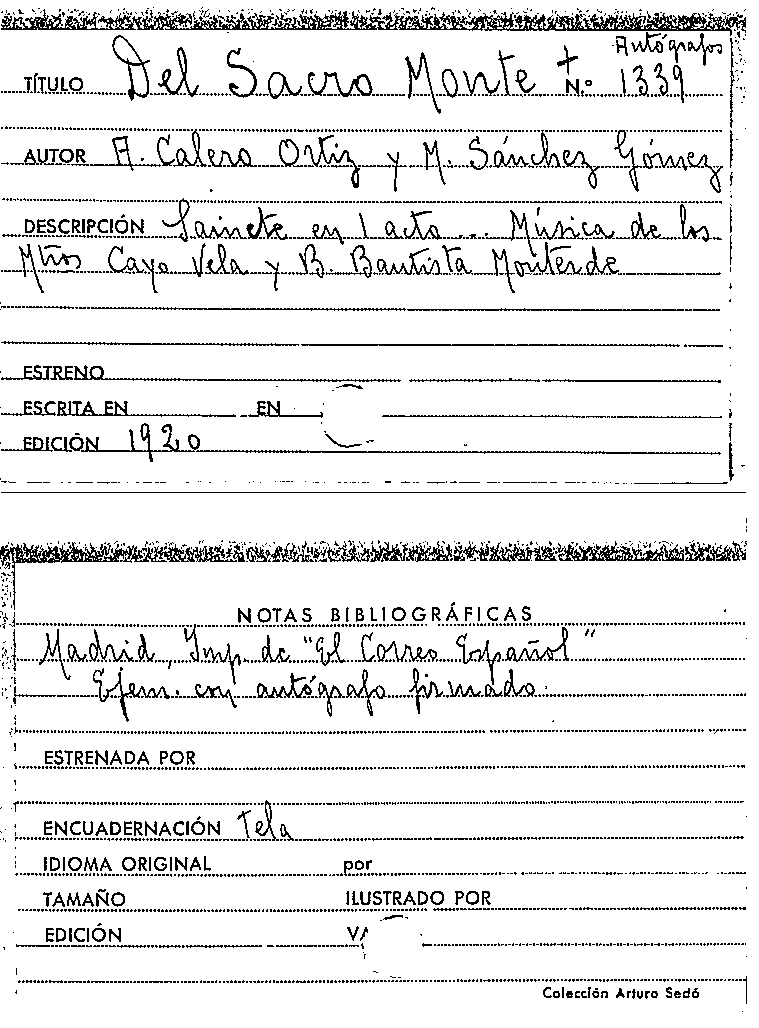 Autógrafos
TÍTULO Del Sacro Monte + N.º 1339
AUTOR A. Calero Ortiz y M. Sánchez Gómez
DESCRIPCIÓN Sainete en 1 acto... Música de los
Mtros Cayo Vela y B. Bautista Monterde
ESTRENO
ESCRITA EN EN
EDICIÓN 1920
NOTAS BIBLIOGRÁFICAS
Madrid, Imp. de "El Correo Español"
Ejem. con autógrafo firmado.
ESTRENADA POR
ENCUADERNACIÓN Tela
IDIOMA ORIGINAL por
TAMAÑO ILUSTRADO POR
EDICIÓN
Colección Arturo Sedó